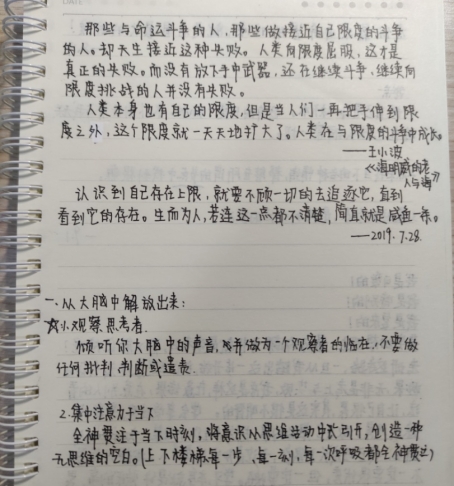 那些与命运斗争的人，那些做接近自己限度的斗争
的人。却天生接近这种失败。人类向限度屈服，这才是
真正的失败。而没有放下手中武器，还在继续斗争，继续向
限度挑战的人并没有失败。
人类本身也有自己的限度，但是当人们一再把手伸到限
度之外，这个限度就一天天地扩大了。人类在与限度的斗争中成长。
——王小波
《海明威的老
人与海》
认识到自己存在上限，就要不顾一切的去追逐它，直到
看到它的存在。生而为人，若连这一点都不清楚，简直就是咸鱼一条。
——2019.7.28
一、从大脑中解放出来：
1.观察思考者.
倾听你大脑中的声音，并做为一个观察者的临在，不要做
任何批判 判断或谴责.
2.集中注意力于当下
全神贯注于当下时刻，将意识从思维活动中引开，创造一种
无思维的空白。(上下楼梯每一步、每一刻，每一次呼吸都全神贯注)